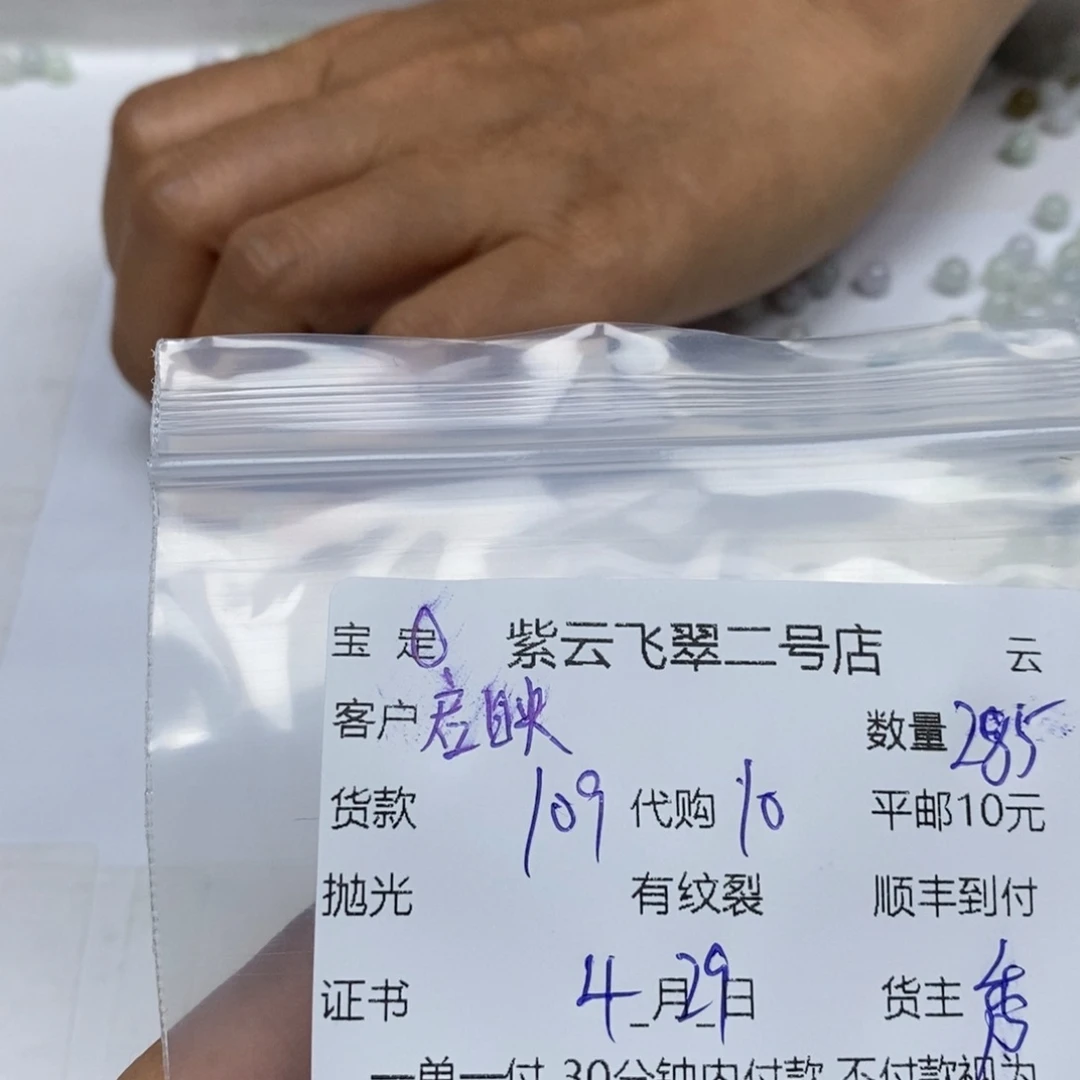 宝 定 紫云飞翠二号店 云
客户 数量 285
货款 109 代购 10 平邮10元
抛光 有纹裂 顺丰到付
证书 4_月29_日 货主 秀
一单一付 30分钟内付款 不付款视为